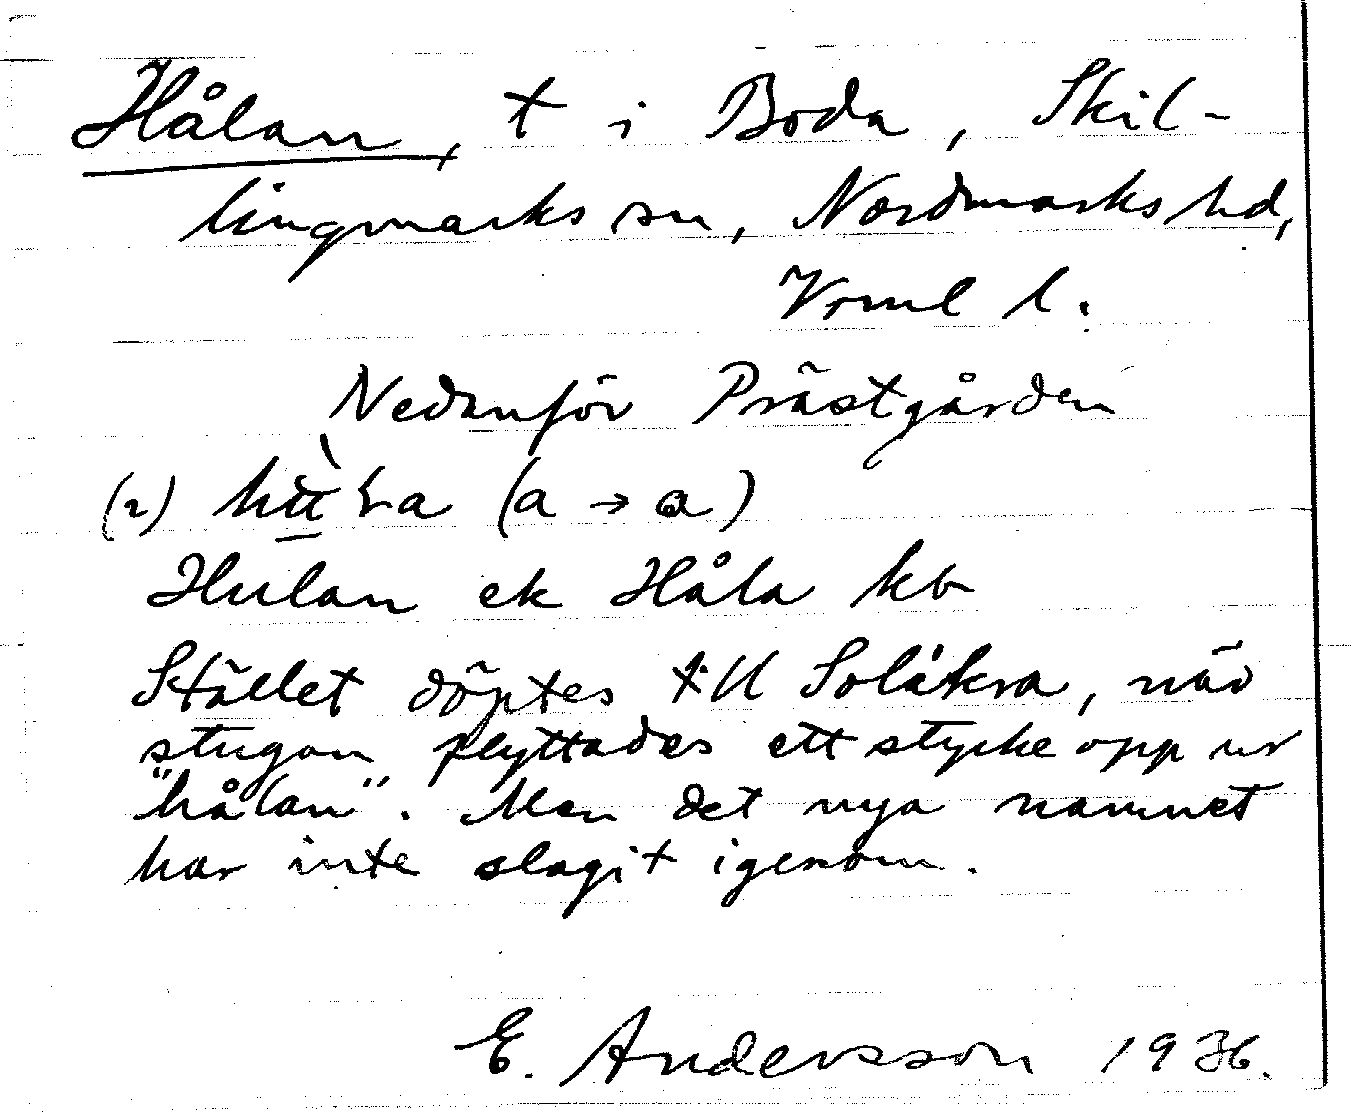 Hålan, t i Boda, Skil-
lingmarks sn, Nordmarks hd,
Vrml l.
Nedanför Prästgården
(2) (a → ɑ)
Hulan ek Håla kb
Stället döptes till Solåkra, när
stugan flyttades ett stycke opp ur
"hålan". Men det nya namnet
har inte slagit igenom.
E. Andersson 1936.